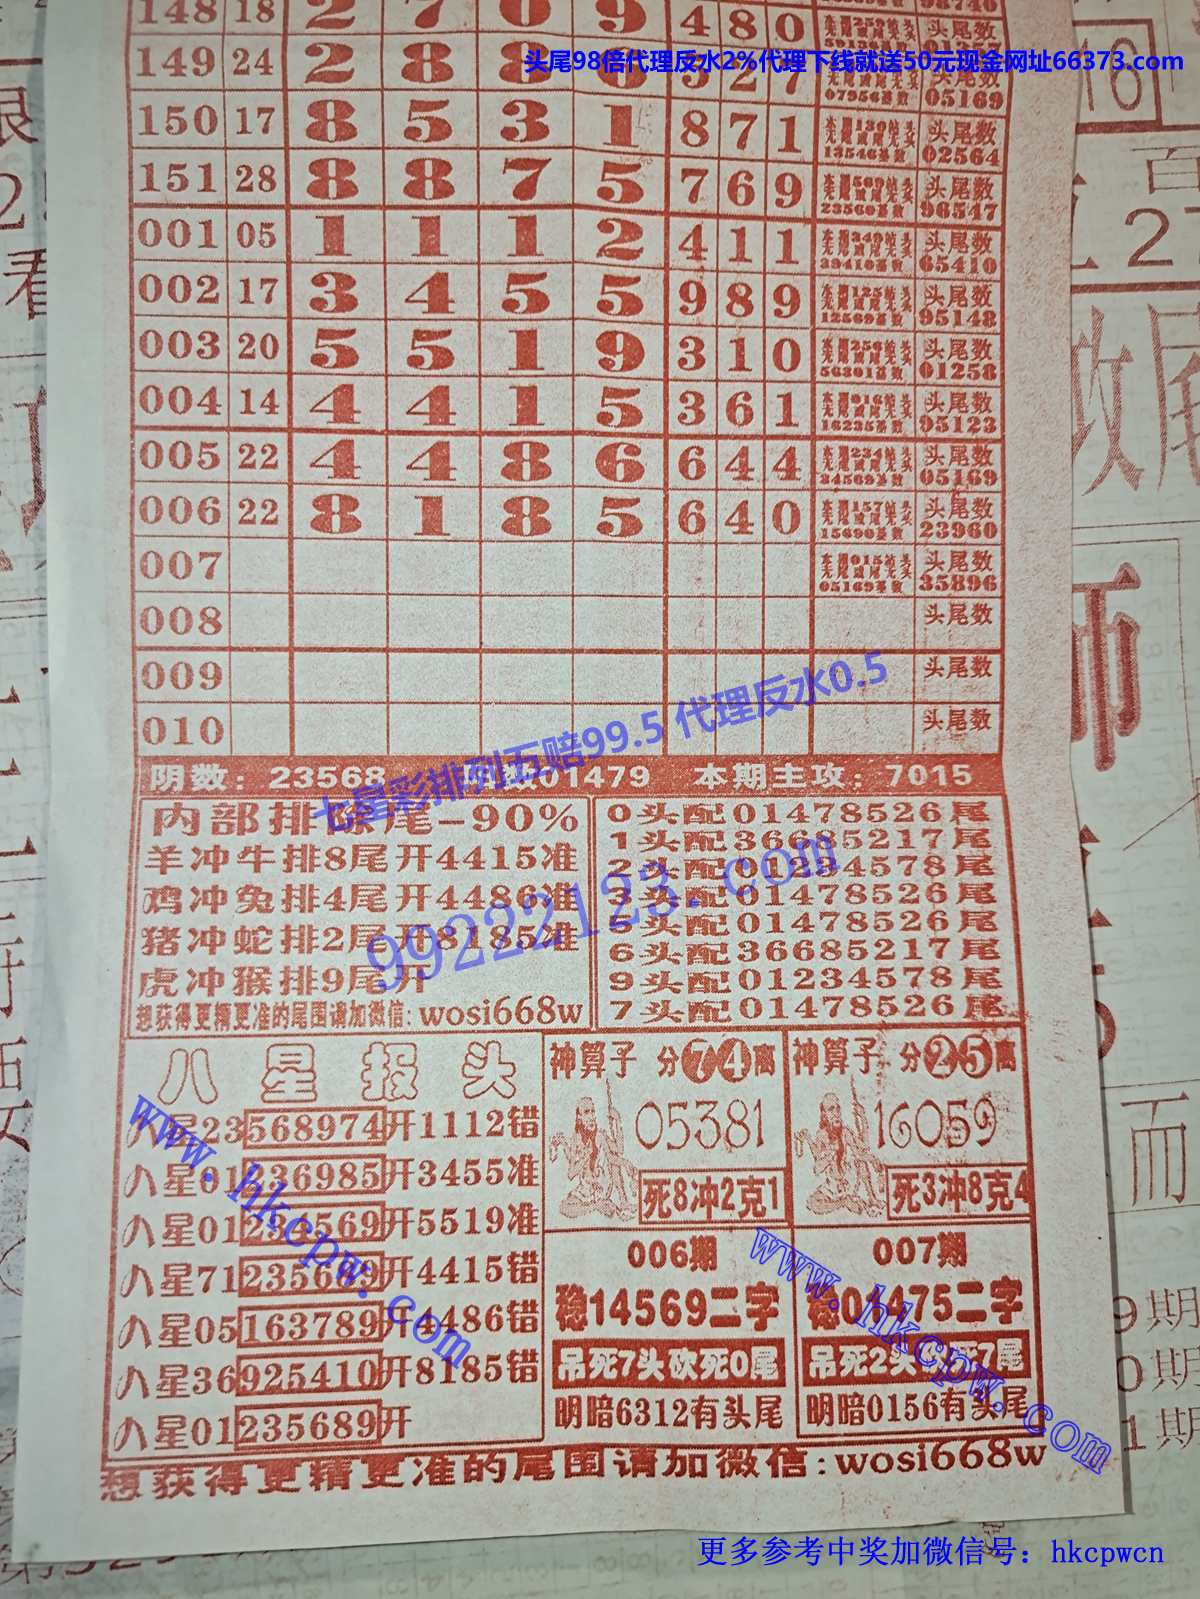 148 18 2 7 0 9 4 8 0
头尾98倍代理反水2%代理下线就送50元现金网址66373.com
149 24 2 8 8 6 5 2 7 07956基数 头尾数 05169
150 17 8 5 3 1 8 7 1 13546基数 头尾数 02564
151 28 8 8 7 5 7 6 9 23560基数 头尾数 96547
001 05 1 1 1 2 4 1 1 39410基数 头尾数 65410
002 17 3 4 5 5 9 8 9 12569基数 头尾数 95148
003 20 5 5 1 9 3 1 0 56301基数 头尾数 01258
004 14 4 4 1 5 3 6 1 16235基数 头尾数 95123
005 22 4 4 8 6 6 4 4 34569基数 头尾数 05169
006 22 8 1 8 5 6 4 0 15690基数 头尾数 23960
007 05169基数 头尾数 35896
008 头尾数
009 头尾数
010 头尾数
七星彩排列五赔99.5 代理反水0.5
阴数：23568 数01479 本期主攻：7015
内部排除尾-90%
羊冲牛排8尾开4415准
鸡冲兔排4尾开4486准
猪冲蛇排2尾开8185准
虎冲猴排9尾开
想获得更精更准的尾围请加微信:wosi668w
0头配01478526尾
1头配36685217尾
2头配01234578尾
3头配01478526尾
5头配01478526尾
6头配36685217尾
9头配01234578尾
7头配01478526尾
99222123.com
八星报头
八星23568974开1112错
八星01236985开3455准
八星01234569开5519准
八星71235689开4415错
八星05163789开4486错
八星36925410开8185错
八星01235689开
神算子 分74离
05381
死8冲2克1
006期
稳14569二字
吊死7头砍死0尾
明暗6312有头尾
神算子 分25离
16059
死3冲8克4
007期
稳01475二字
吊死2头砍死7尾
明暗0156有头尾
www.hkcpw.com
www.hkcpw.com
想获得更精更准的尾围请加微信:wosi668w
更多参考中奖加微信号：hkcpwcn